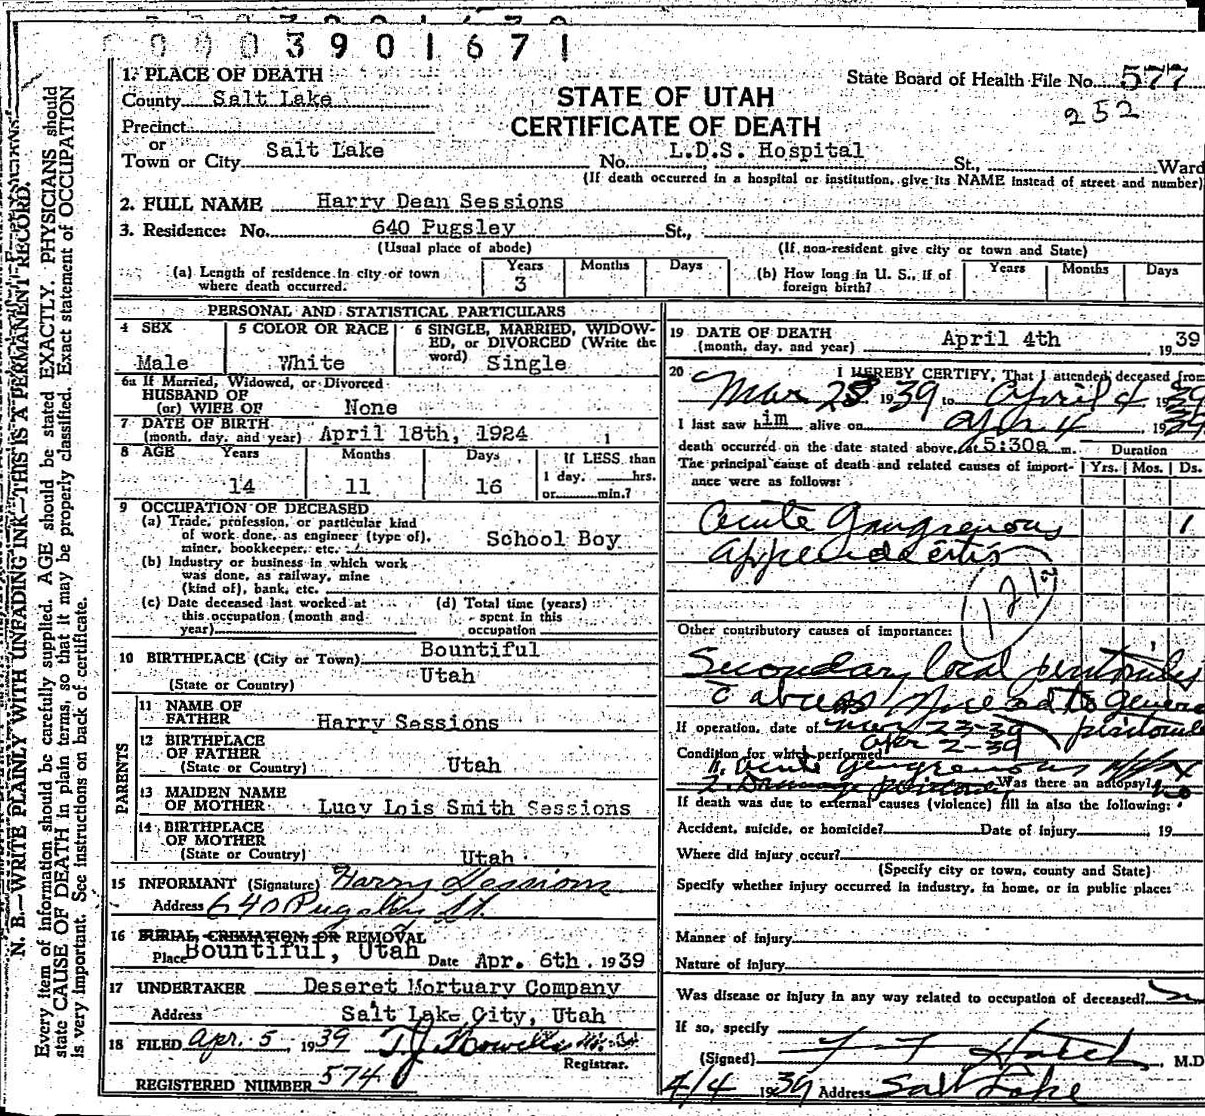 0003901671
1. PLACE OF DEATH
State Board of Health File No. 577
County Salt Lake
252
STATE OF UTAH
CERTIFICATE OF DEATH
Precinct
or
Town or City Salt Lake No. L.D.S. Hospital St., Ward
(If death occurred in a hospital or institution, give its NAME instead of street and number)
2. FULL NAME Harry Dean Sessions
3. Residence: No. 640 Pugsley St.,
(Usual place of abode) (If non-resident give city or town and State)
(a) Length of residence in city or town where death occurred. Years 3 Months Days
(b) How long in U. S., if of foreign birth? Years Months Days
PERSONAL AND STATISTICAL PARTICULARS
4 SEX
Male
5 COLOR OR RACE
White
6 SINGLE, MARRIED, WIDOW-
ED, or DIVORCED (Write the
word) Single
6a If Married, Widowed, or Divorced
HUSBAND OF
(or) WIFE OF None
7 DATE OF BIRTH
(month, day, and year) April 18th, 1924
8 AGE Years Months Days If LESS than
14 11 16
1 day, hrs.
or min.?
9 OCCUPATION OF DECEASED
(a) Trade, profession, or particular kind
of work done, as engineer (type of),
miner, bookkeeper, etc. School Boy
(b) Industry or business in which work
was done, as railway, mine
(kind of), bank, etc.
(c) Date deceased last worked at
this occupation (month and
year)
(d) Total time (years)
spent in this
occupation
10 BIRTHPLACE (City or Town) Bountiful
(State or Country) Utah
PARENTS
11 NAME OF
FATHER Harry Sessions
12 BIRTHPLACE
OF FATHER
(State or Country) Utah
13 MAIDEN NAME
OF MOTHER Lucy Lois Smith Sessions
14 BIRTHPLACE
OF MOTHER
(State or Country) Utah
15 INFORMANT (Signature) Harry Sessions
Address 640 Pugsley St.
16 BURIAL, CREMATION, OR REMOVAL
Place Bountiful, Utah Date Apr. 6th. 1939
17 UNDERTAKER Deseret Mortuary Company
Address Salt Lake City, Utah
18 FILED Apr. 5, 1939 T.J. Howells
Registrar.
REGISTERED NUMBER 574
19 DATE OF DEATH
(month, day, and year) April 4th 1939
20 I HEREBY CERTIFY, That I attended deceased from
Mar 23 1939 to April 4, 1939
I last saw him alive on Apr 4 1939
death occurred on the date stated above, at 5:30a m.
Duration
The principal cause of death and related causes of import-
ance were as follows:
Yrs. Mos. Ds.
Acute Gangrenous 1
Appendicitis
121a
Other contributory causes of importance:
Secondary local peritonitis
c abcess spread to general
peritonitis
If operation, date of Mar 23-39
Apr 2-39
Condition for which performed
1. Acute gangrenous Appx
2. Drainage Was there an autopsy? No
If death was due to external causes (violence) fill in also the following:
Accident, suicide, or homicide? Date of injury 19
Where did injury occur?
(Specify city or town, county and State)
Specify whether injury occurred in industry, in home, or in public place:
Manner of injury
Nature of injury
Was disease or injury in any way related to occupation of deceased?
If so, specify
(Signed) Hatch, M.D
4/4 1939 Address Salt Lake
N. B.—WRITE PLAINLY WITH UNFADING INK—THIS IS A PERMANENT RECORD.
Every item of information should be carefully supplied. AGE should be stated EXACTLY. PHYSICIANS should
state CAUSE OF DEATH in plain terms, so that it may be properly classified. Exact statement of OCCUPATION
is very important. See instructions on back of certificate.